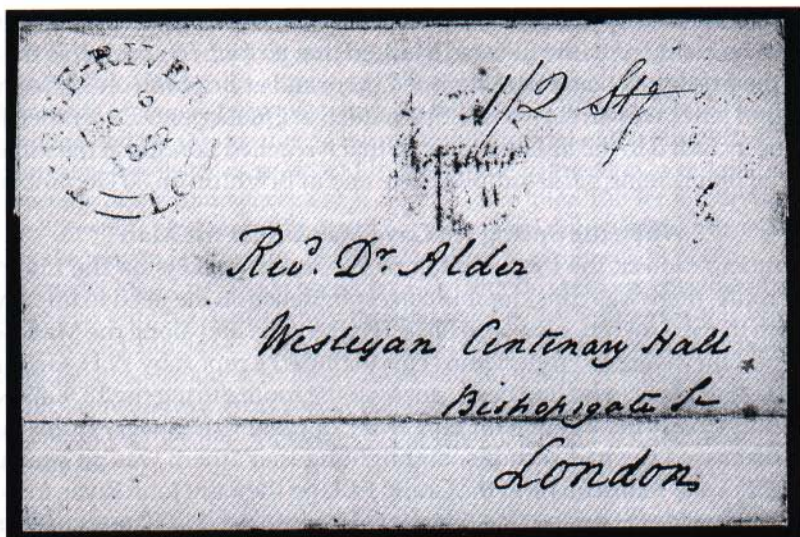 -RIVER
DEC 6
1842
L.C.
1/2 Stg
Revd. Dr. Alder
Wesleyan Centenary Hall
Bishopsgate St
London